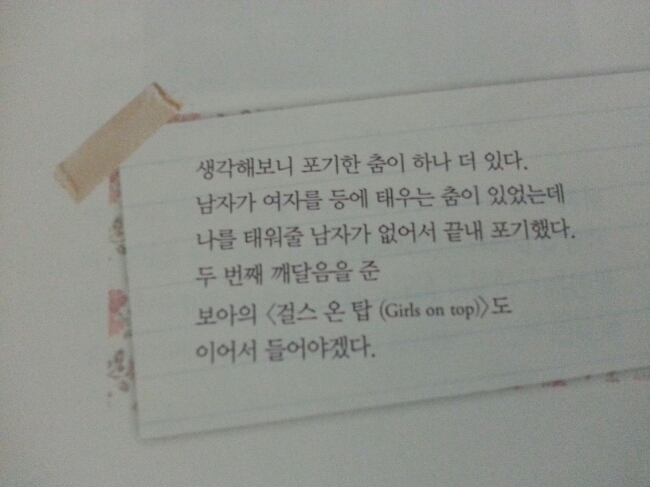 생각해보니 포기한 춤이 하나 더 있다.
남자가 여자를 등에 태우는 춤이 있었는데
나를 태워줄 남자가 없어서 끝내 포기했다.
두 번째 깨달음을 준
보아의 〈걸스 온 탑 (Girls on top)〉도
이어서 들어야겠다.